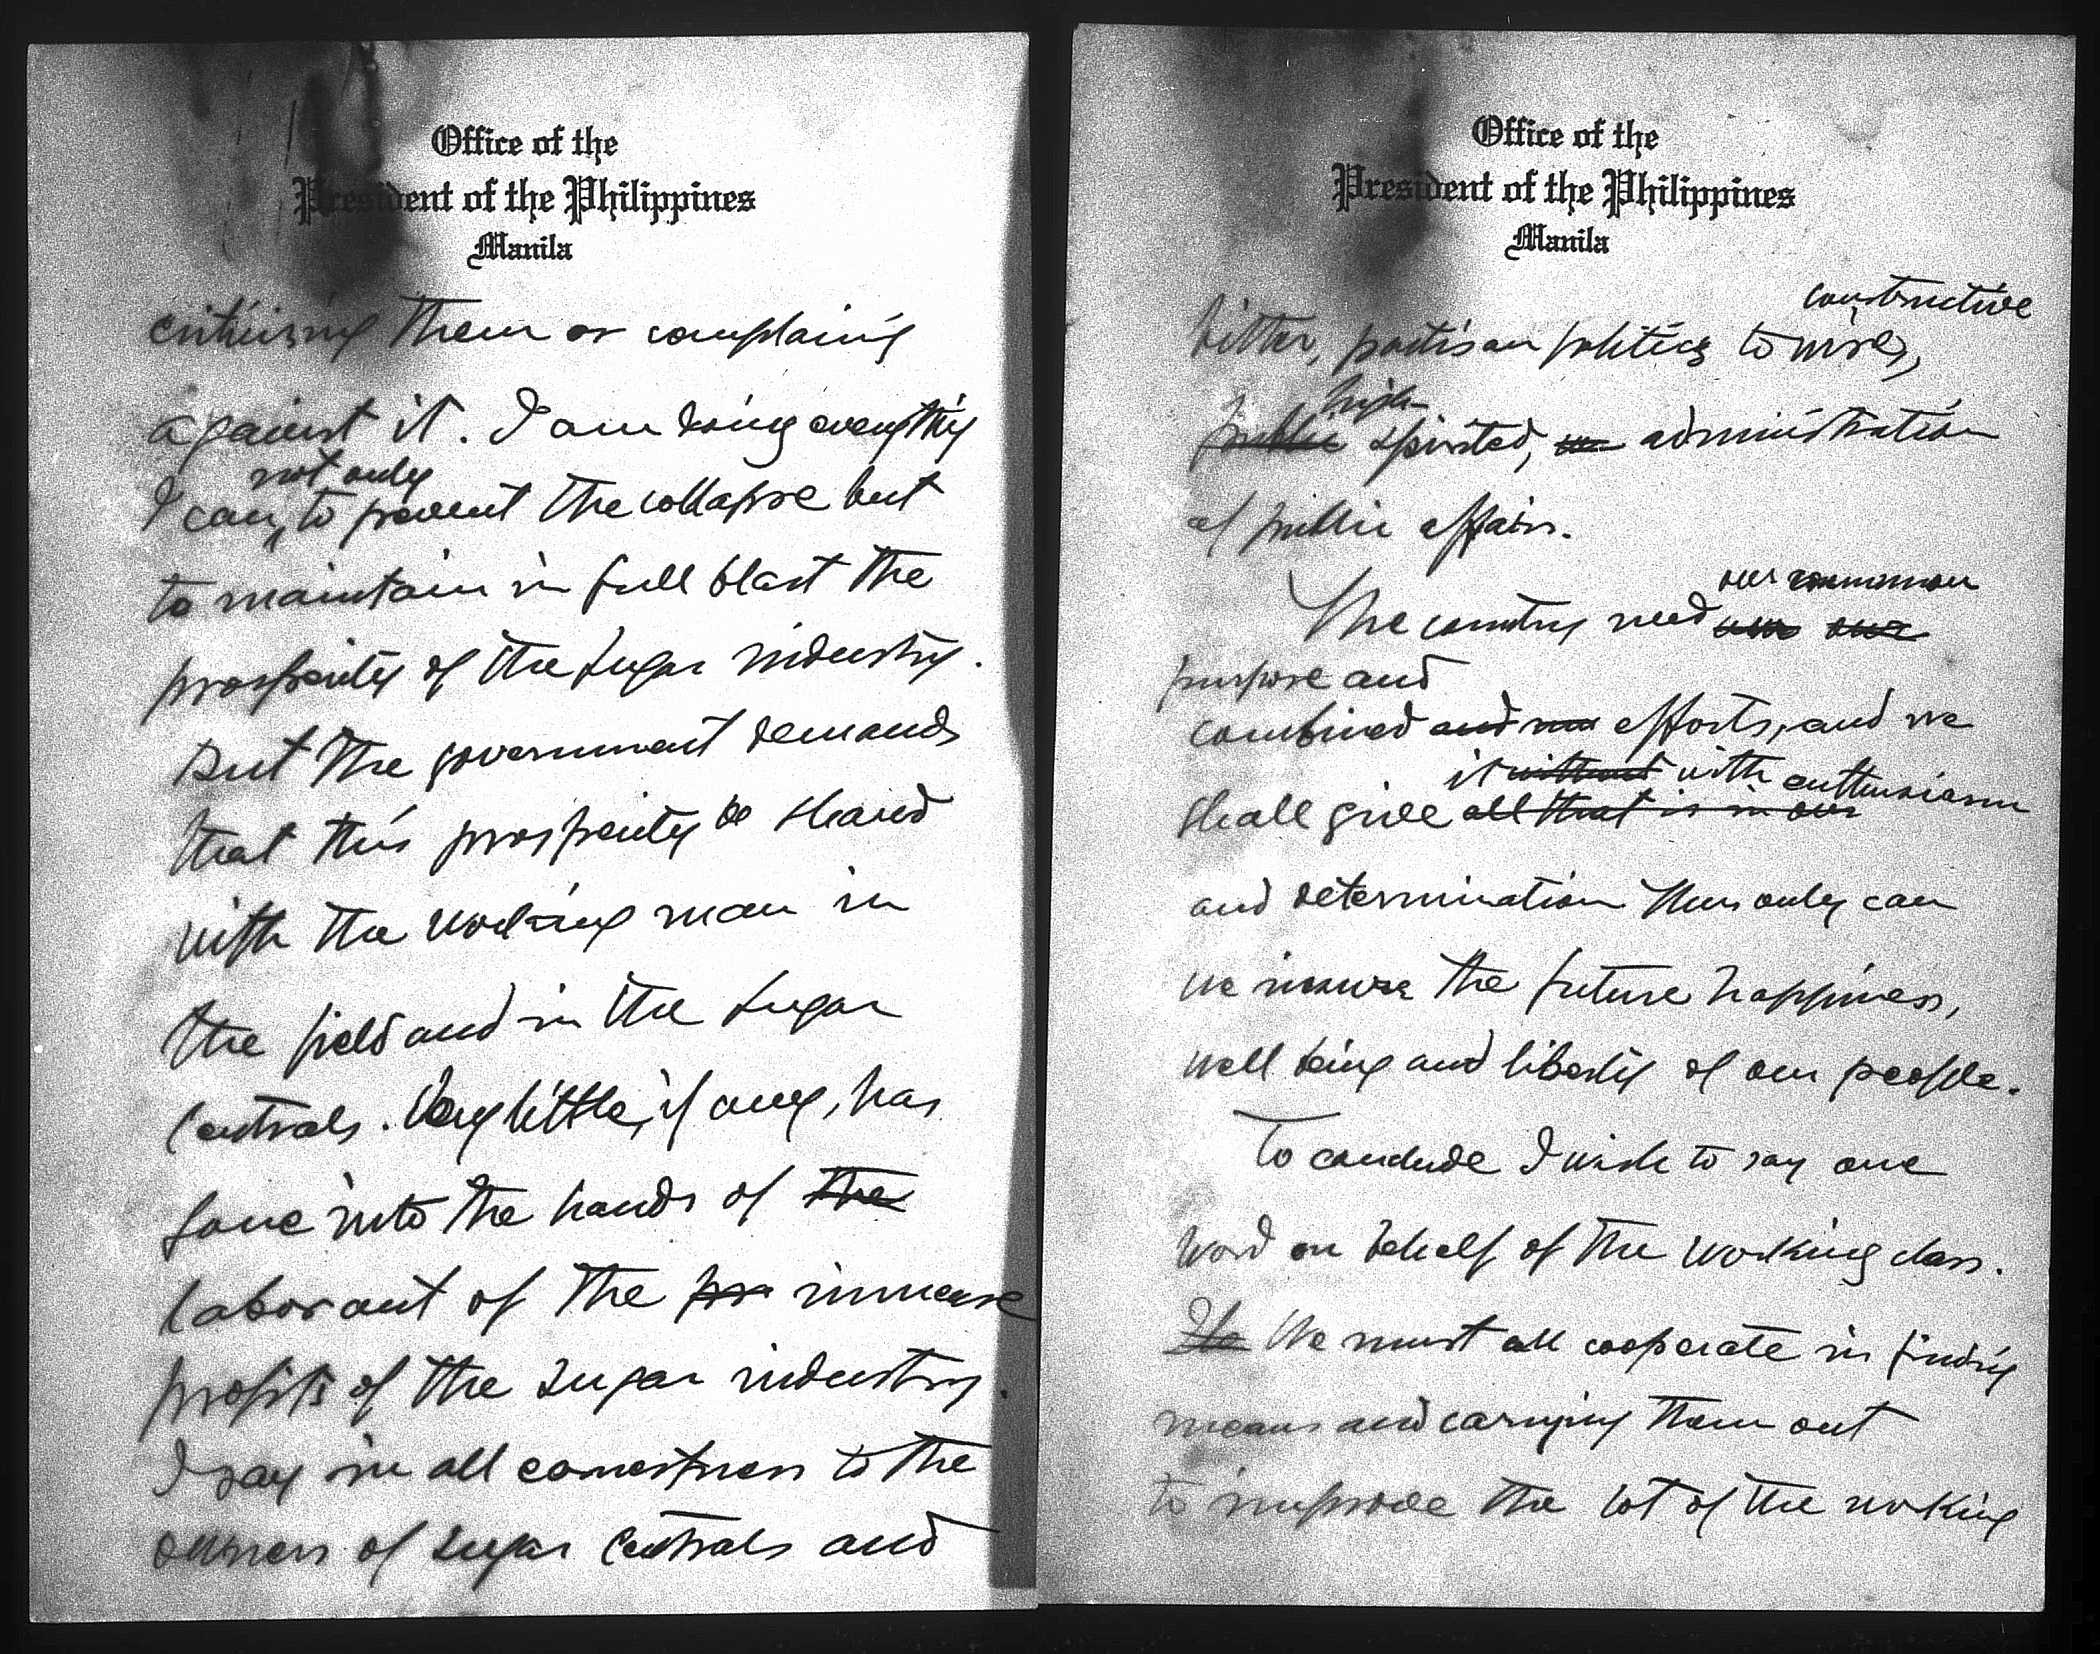 Office of the
President of the Philippines
Manila
criticising them or complaing
against it. I am doing everythig
not only
I can, to prevent the collapse but
to maintain in full blast the
prosperity of the sugar industry.
But the government demands
that this prosperity be shared
with the working man in
the field and in the sugar
Centrals. Very little, if any, has
gone into the hands of the
labor out of the pro immense
profits of the sugar industry.
I say in all earnestness to the
owners of sugar Centrals and
Office of the
President of the Philippines
Manila
constructive
bitter, partisan politics to wise,
high
public spirited, administration
of public affairs.
our common
The country need our
purpose and
combined and efforts, and we
it without with enthusiasm
shall give all that is in our
and determination Thus only can
we insure the future happiness,
well being and liberty of our people.
To conclude I wish to say one
word on behalf of the working class.
We must all cooperate in findig
means and carrying them out
to improve the lot of the working